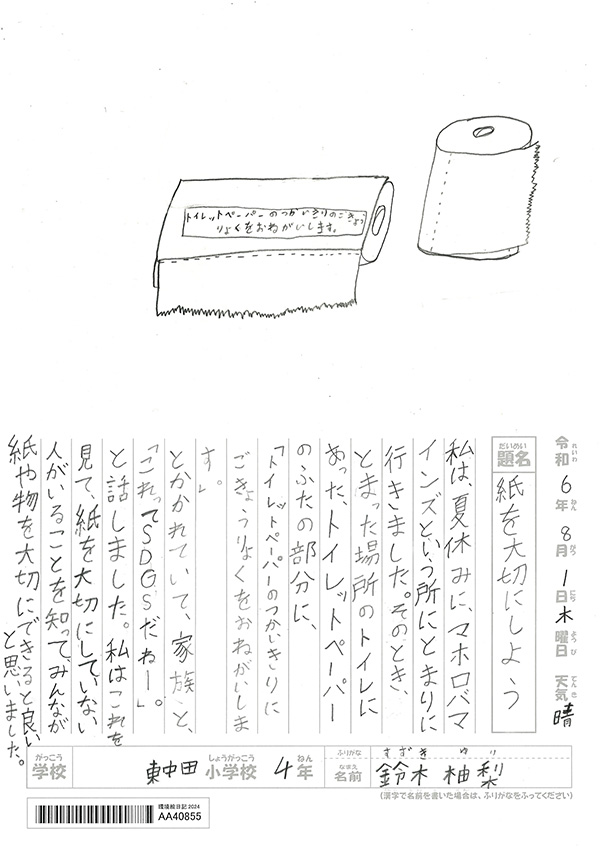 トイレットペーパーのつかいきりのごきょう
りょくをおねがいします。
令和6年8月1日木曜日 天気 晴
れいわ ねん がつ にち ようび てんき
だいめい
題名 紙を大切にしよう
私は、夏休みに、マホロバマ
インズという所にとまりに
行きました。そのとき、
とまった場所のトイレに
あった、トイレットペーパー
のふたの部分に、
「トイレットペーパーのつかいきりに
ごきょうりょくをおねがいしま
す。」
とかかれていて、家族と、
「これってSDGSだねー」。
と話しました。私はこれを
見て、紙を大切にしていない
人がいることを知って、みんなが
紙や物を大切にできると良い
と思いました。
がっこう しょうがっこう ねん
学校 東中田 小学校 4年
ふりがな すずき ゆり
なまえ
名前 鈴木 柚梨
(漢字で名前を書いた場合は、ふりがなをふってください)
環境絵日記2024
AA40855